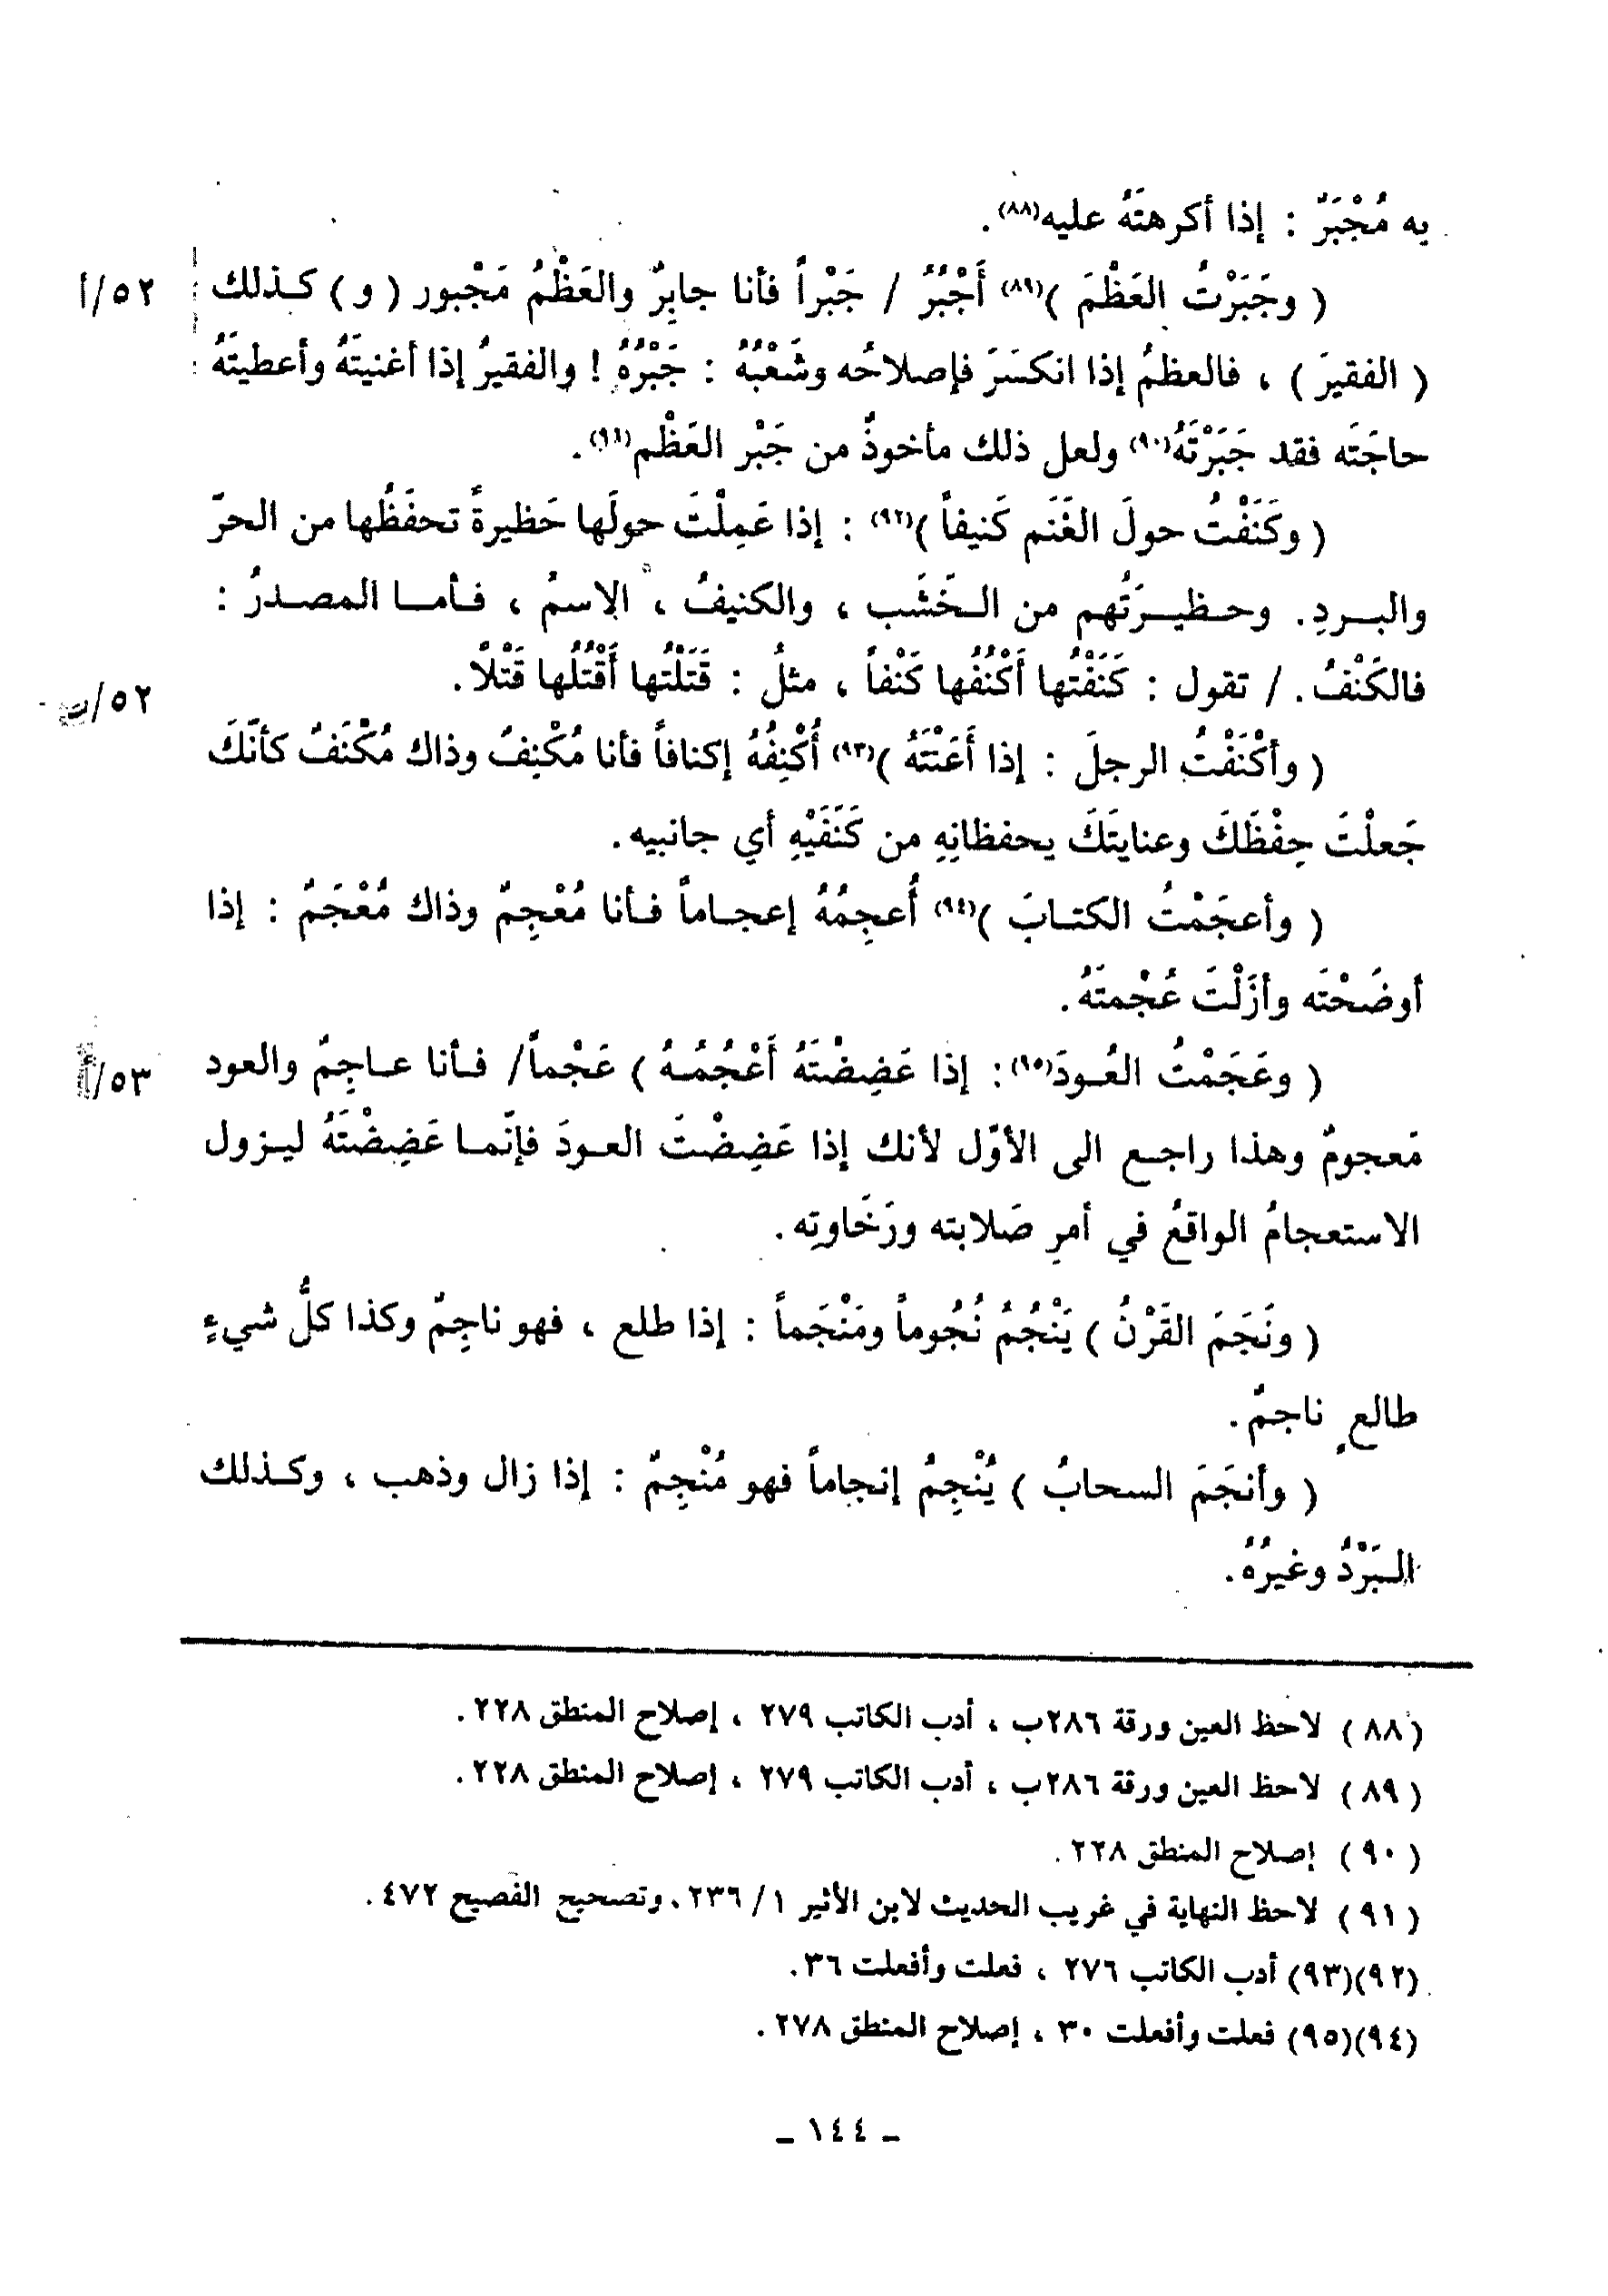 به مُجْبَرٌ : إذا أكرهتَهُ عليه(٨٨).
( وجَبَرْتُ العَظْمَ )(٨٩) أَجْبُرُ / جَبْراً فأنا جابِرٌ والعَظْمُ مَجْبور ( و ) كـذلك ٥٢/أ
( الفقيرَ ) ، فالعظمُ إذا انكسَرَ فإصلاحُه وشَعْبُهُ : جَبْرُهُ ! والفقيرُ إذا أغنيتَهُ وأعطيتَهُ
حاجَتَه فقد جَبَرْتَهُ(٩٠) ولعل ذلك مأخوذٌ من جَبْر العَظْم(٩١).
( وكَنَفْتُ حولَ الغَنَم كَنيفاً )(٩٢) : إذا عَمِلْتَ حولَها حَظيرةً تحفَظُها من الحرّ
والبـردِ. وحـظيـرَتُهم من الـخَشَب ، والكنيفُ ، الاِسمُ ، فـأمـا المصـدرُ :
فالكَنْفُ. / تقول : كَنَفْتُها أَكْنُفُها كَنْفاً ، مثلُ : قَتَلْتُها أَقْتُلُها قَتْلاً. ٥٢/ب
( وأكْنَفْتُ الرجلَ : إذا أَعَنْتَهُ )(٩٣) أُكْنِفُهُ إكنافاً فأنا مُكْنِفٌ وذاك مُكْنَفٌ كأنّكَ
جَعلْتَ حِفْظَكَ وعنايتَكَ يحفظانِهِ من كَنَفَيْهِ أي جانبيه.
( وأعجَمْتُ الكتـابَ )(٩٤) أُعجِمُهُ إعجـاماً فـأنا مُعْجِمٌ وذاك مُعْجَمٌ : إذا
أوضَحْتَه وأزَلْتَ عُجْمتَهُ.
( وعَجَمْتُ العُـودَ(٩٥): إذا عَضِضْتَهُ أَعْجُمُـهُ ) عَجْماً/ فـأنا عـاجِمٌ والعود ٥٣/أ
مَعجومٌ وهذا راجـع الى الأوّل لأنك إذا عَضِضْتَ العـودَ فإنّمـا عَضِضْتَهُ ليـزول
الاستعجامُ الواقعُ في أمرِ صَلابته ورَخَاوتِه.
( ونَجَمَ القَرْنُ ) يَنْجُمُ نُجُوماً ومَنْجَماً : إذا طلع ، فهو ناجِمٌ وكذا كلُّ شيءٍ
طالعٍ ناجمٌ.
( وأنجَمَ السحابُ ) يُنْجِمُ إنجاماً فهو مُنْجِمٌ : إذا زال وذهب ، وكـذلك
البَرْدُ وغيرُهُ.
( ٨٨ ) لاحظ العين ورقة ٢٨٦ب ، أدب الكاتب ٢٧٩ ، إصلاح المنطق ٢٢٨.
( ٨٩ ) لاحظ العين ورقة ٢٨٦ب ، أدب الكاتب ٢٧٩ ، إصلاح المنطق ٢٢٨.
( ٩٠ ) إصلاح المنطق ٢٢٨.
( ٩١ ) لاحظ النهاية في غريب الحديث لابن الأثير ١/ ٢٣٦، وتصحيح الفصيح ٤٧٢.
(٩٢)(٩٣) أدب الكاتب ٢٧٦ ، فعلت وأفعلت ٣٦.
(٩٤)(٩٥) فعلت وأفعلت ٣٠ ، إصلاح المنطق ٢٧٨.
ـ ١٤٤ ـ